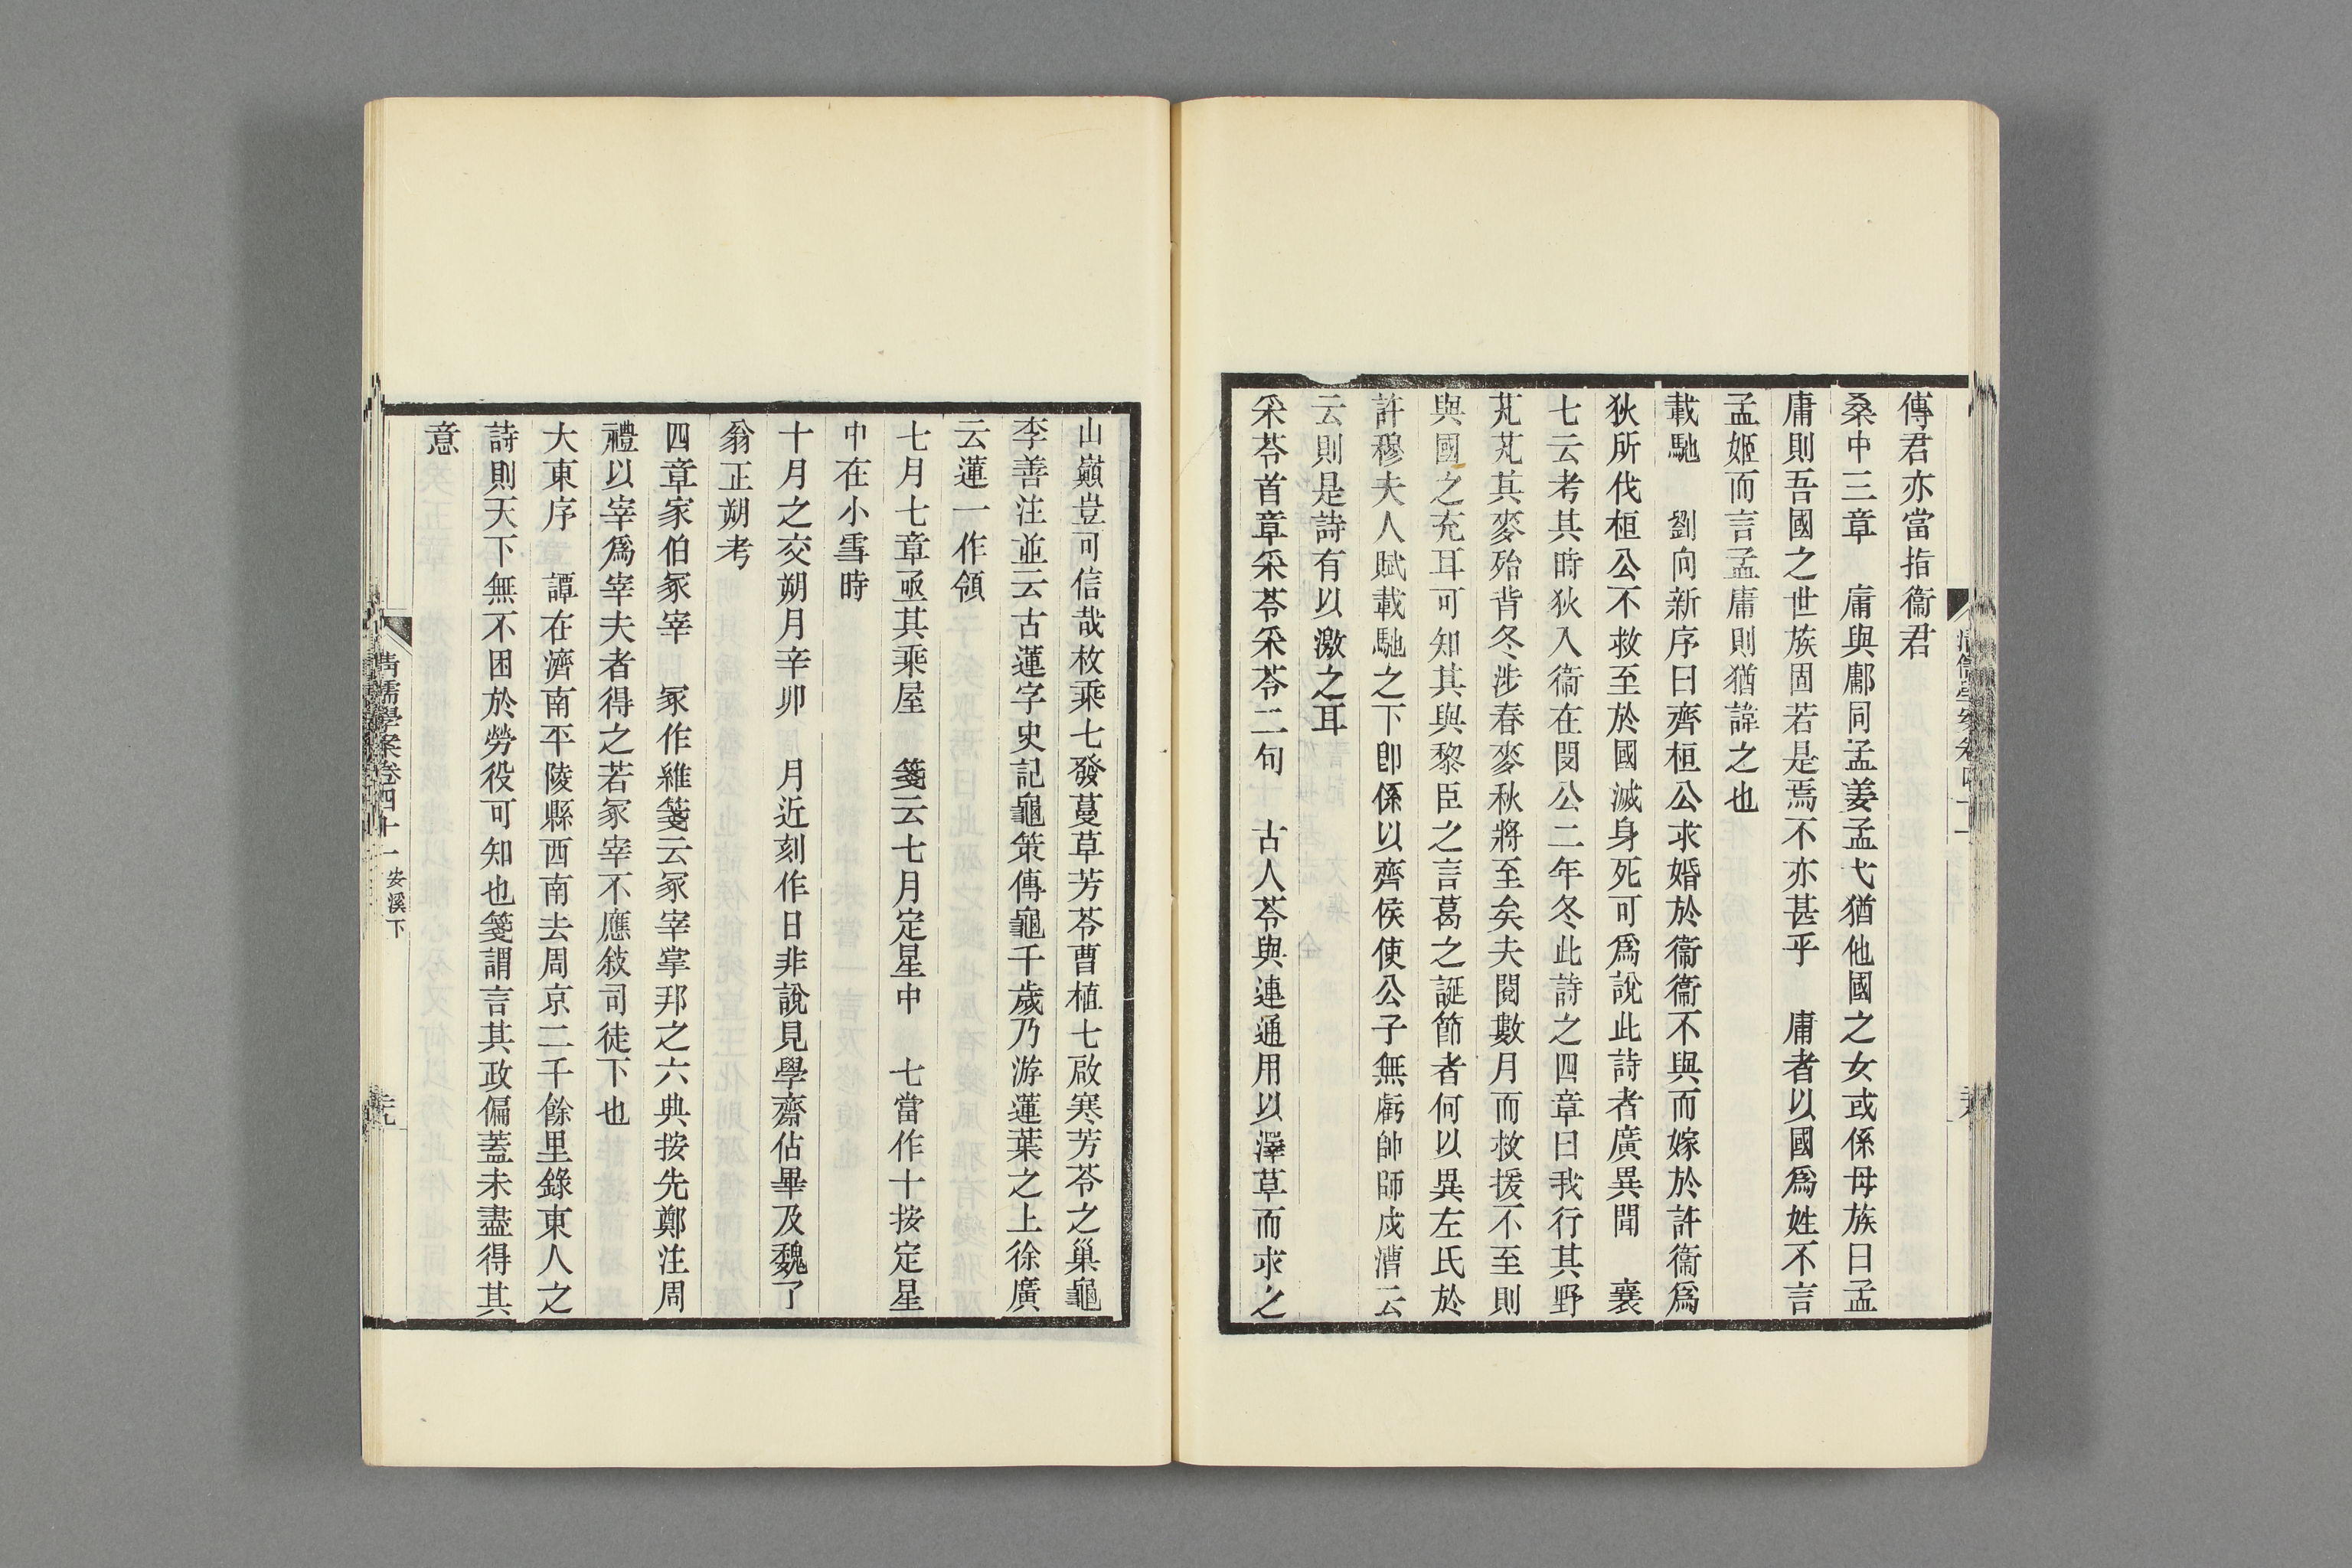 傳君亦當指衞君
桑中三章　庸與鄘同孟姜孟弋猶他國之女或係母族曰孟
庸則吾國之世族固若是焉不亦甚乎　庸者以國爲姓不言
孟姬而言孟庸則猶諱之也
載馳　劉向新序曰齊桓公求婚於衞衞不與而嫁於許衞爲
狄所伐桓公不救至於國滅身死可爲說此詩者廣異聞　襄
七云考其時狄入衞在閔公二年冬此詩之四章曰我行其野
芃芃其麥殆背冬涉春麥秋將至矣夫閱數月而救援不至則
與國之充耳可知其與黎臣之言葛之誕節者何以異左氏於
許穆夫人賦載馳之下卽係以齊侯使公子無虧帥師戍漕云
云則是詩有以激之耳
采苓首章采苓采苓二句　古人苓與連通用以澤草而求之
山巔豈可信哉枚乘七發蔓草芳苓曹植七啟寒芳苓之巢龜
李善注並云古蓮字史記龜策傳龜千歲乃游蓮葉之上徐廣
云蓮一作領
七月七章亟其乘屋　箋云七月定星中　七當作十按定星
中在小雪時
十月之交朔月辛卯　月近刻作日非說見學齋佔畢及魏了
翁正朔考
四章家伯冢宰　冢作維箋云冢宰掌邦之六典按先鄭注周
禮以宰爲宰夫者得之若冢宰不應敍司徒下也
大東序　譚在濟南平陵縣西南去周京二千餘里錄東人之
詩則天下無不困於勞役可知也箋謂言其政偏蓋未盡得其
意
清儒學案卷四十一　安溪下